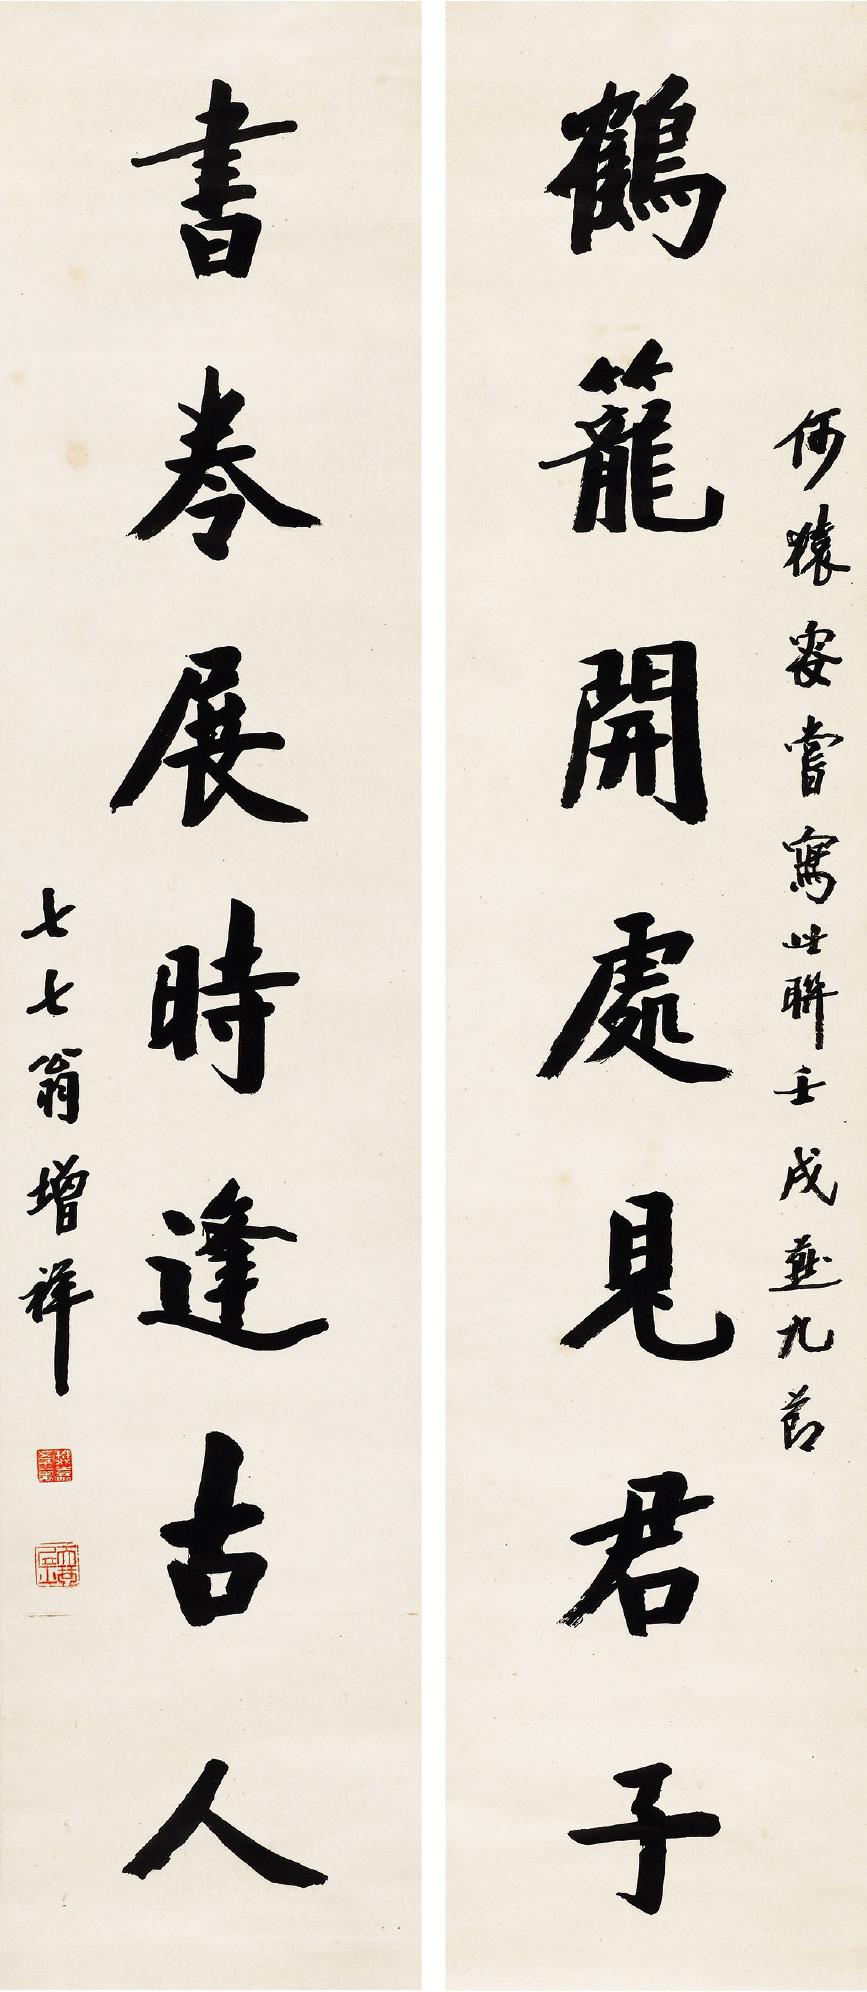 鶴籠開處見君子
何猿叟嘗寫此聯壬戌燕九節
書卷展時逢古人
七七翁增祥